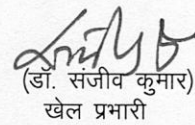 (डॉ. संजीव कुमार)
खेल प्रभारी